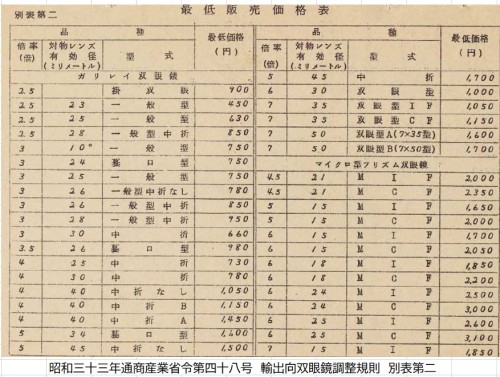 別表第二
最低販売価格表
品種 最低価格(円)
倍率(倍) 対物レンズ有効径(ミリメートル) 型式
ガリレイ双眼鏡
2.5 掛双眼 900
2.5 23 一般型 450
2.5 25 一般型 630
2.5 28 一般型中折 850
3 10° 一般型 750
3 24 口型 750
3 25 一般型 750
3 26 一般型中折なし 780
3 26 一般型中折 850
3 28 一般型中折 950
3 30 中折 660
3.5 26 口型 980
4 25 中折 730
4 30 中折 780
4 40 中折なし 1,050
4 40 中折B 1,150
4 40 中折A 1,450
5 34 口型
5 45 中折なし 1,500
品種 最低価格(円)
倍率(倍) 対物レンズ有効径(ミリメートル) 型式
5 45 中折 1,700
6 30 双眼型 1,000
7 35 双眼型IF 1,050
7 35 双眼型CF 1,150
7 50 双眼型A(7×35型) 1,600
7 50 双眼型B(7×50型) 1,700
マイクロ型プリズム双眼鏡
4.5 21 MIF 2,000
4.5 21 MCF 2,350
6 15 MIF 1,650
6 15 MCF 2,000
6 15 MIF 1,700
6 15 MCF 2,050
6 18 MIF 1,850
6 18 MCF 2,200
6 24 MIF 2,500
6 24 MCF 3,000
6 25 MIF 2,600
6 25 MCF 3,100
7 15 MIF 1,850
昭和三十三年通商産業省令第四十八号 輸出向双眼鏡調整規則 別表第二